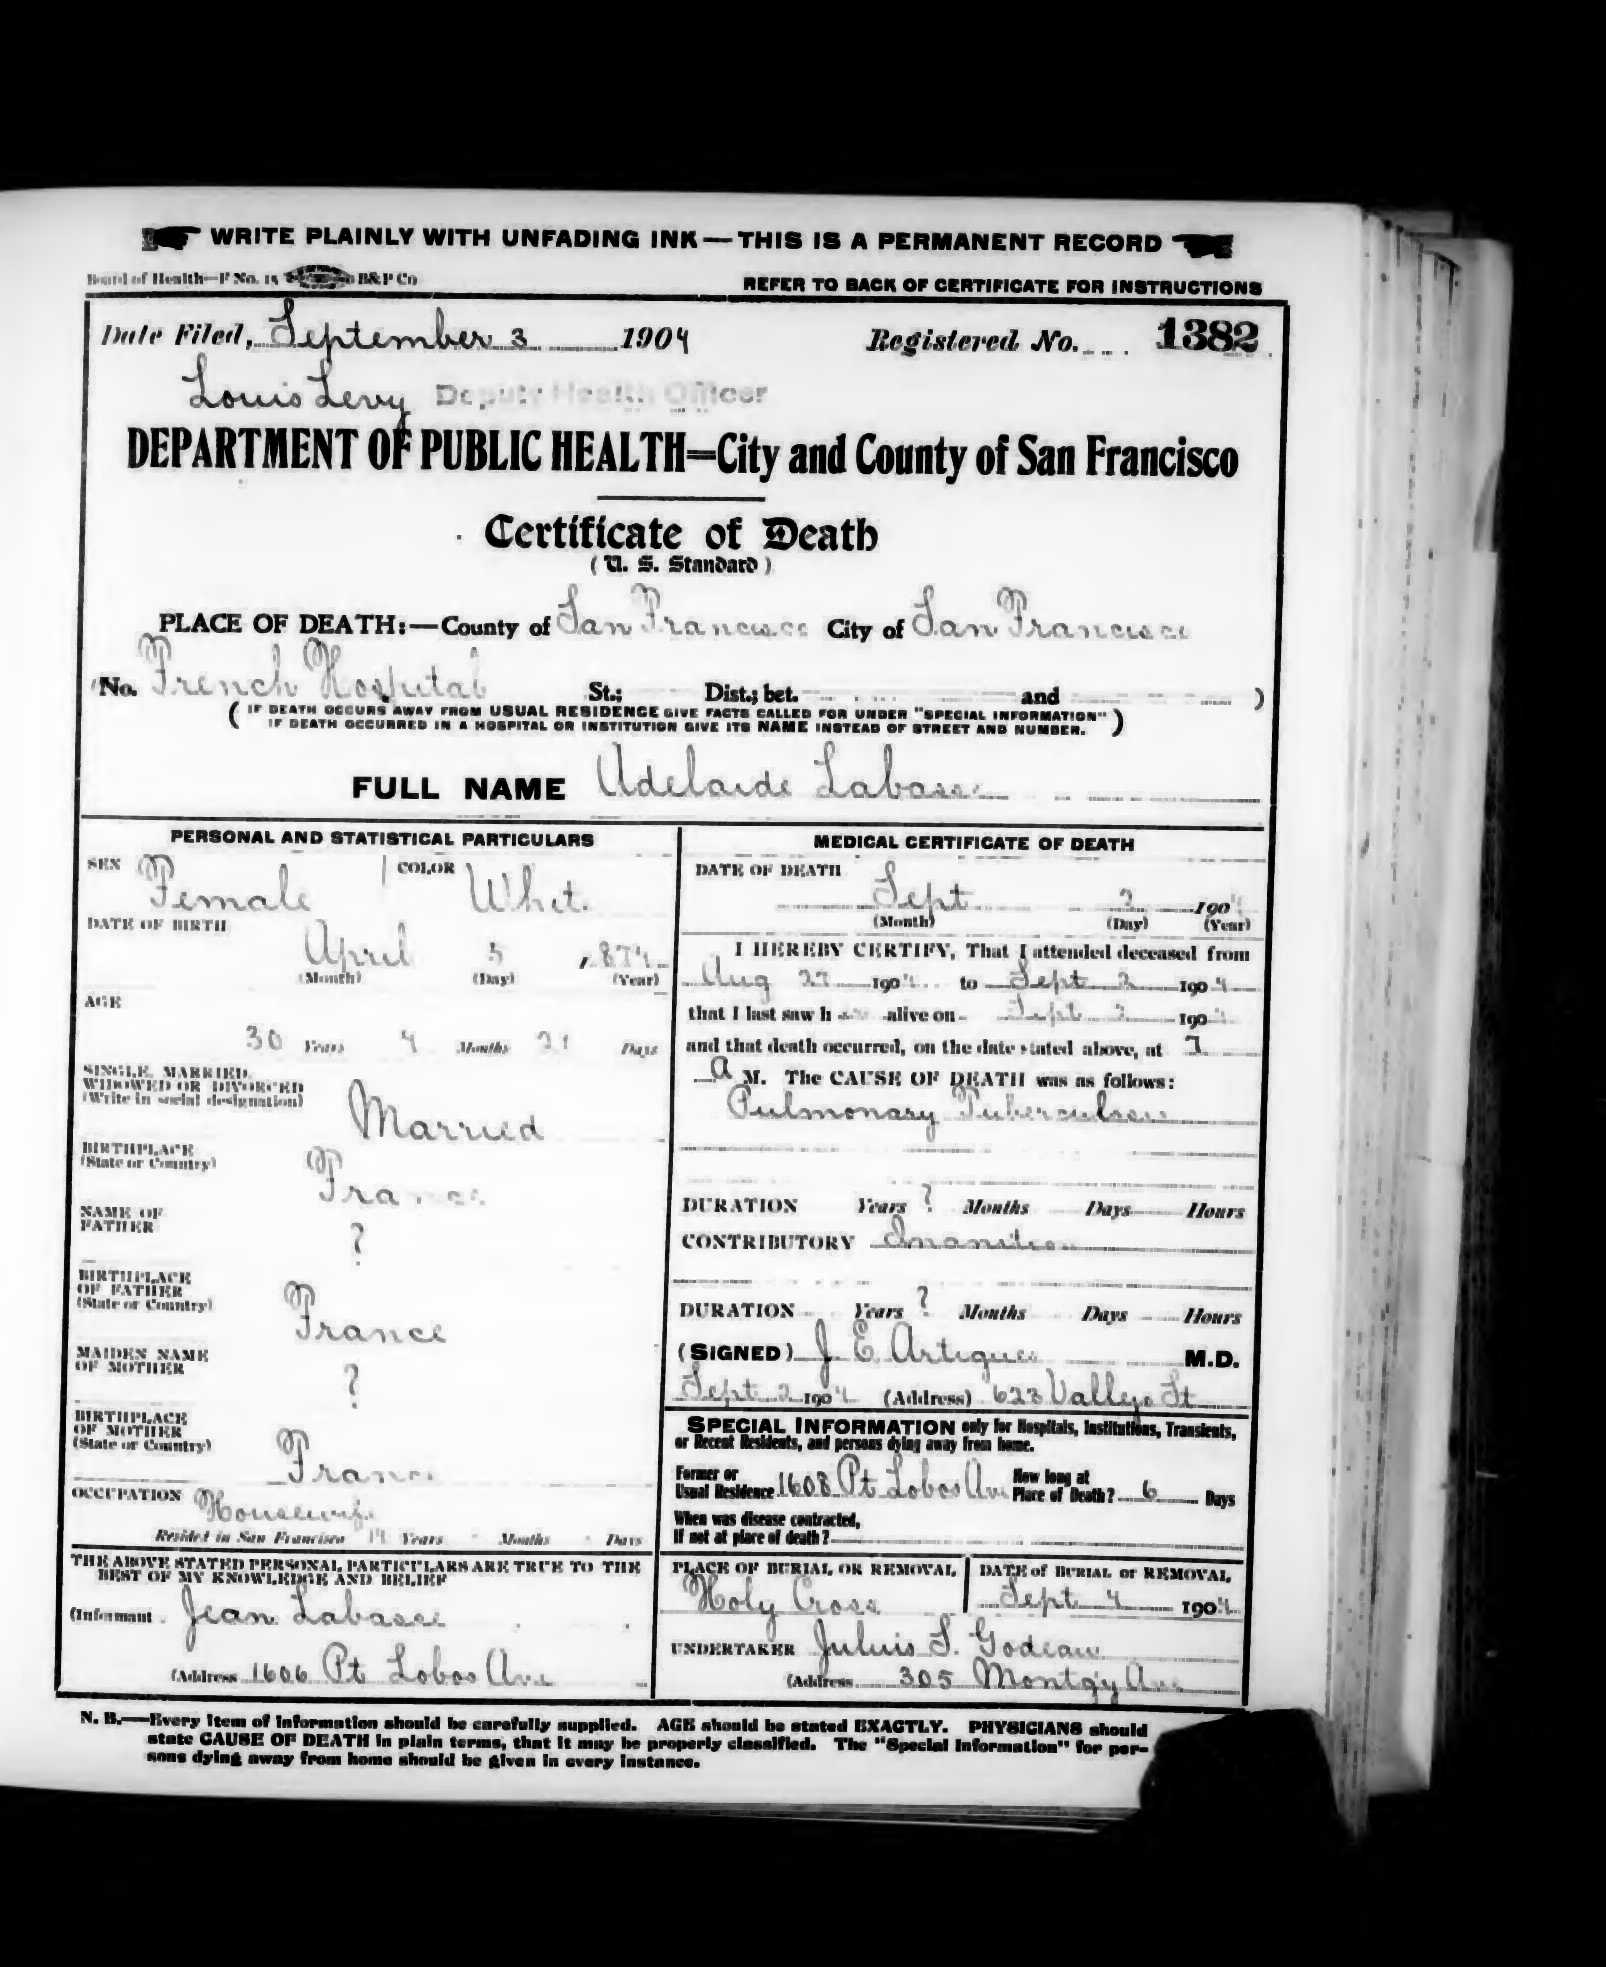 WRITE PLAINLY WITH UNFADING INK—THIS IS A PERMANENT RECORD
Board of Health—F No. 15 B&P Co
REFER TO BACK OF CERTIFICATE FOR INSTRUCTIONS
Date Filed, September 3 1904 Registered No. 1382
Louis Levy Deputy Health Officer
DEPARTMENT OF PUBLIC HEALTH=City and County of San Francisco
Certificate of Death
(U. S. Standard)
PLACE OF DEATH:—County of San Francisco City of San Francisco
(No. French Hospital St.; Dist.; bet. and )
(IF DEATH OCCURS AWAY FROM USUAL RESIDENCE GIVE FACTS CALLED FOR UNDER "SPECIAL INFORMATION"
IF DEATH OCCURRED IN A HOSPITAL OR INSTITUTION GIVE ITS NAME INSTEAD OF STREET AND NUMBER.)
FULL NAME Adelaide Labasse
PERSONAL AND STATISTICAL PARTICULARS
SEX Female COLOR White
DATE OF BIRTH
April 5, 1874
(Month) (Day) (Year)
AGE
30 Years 4 Months Days
SINGLE, MARRIED,
WIDOWED OR DIVORCED
(Write in social designation)
Married
BIRTHPLACE
(State or Country)
France
NAME OF
FATHER
?
BIRTHPLACE
OF FATHER
(State or Country)
France
MAIDEN NAME
OF MOTHER
?
BIRTHPLACE
OF MOTHER
(State or Country)
France
OCCUPATION Housewife
Resided in San Francisco Years Months Days
THE ABOVE STATED PERSONAL PARTICULARS ARE TRUE TO THE
BEST OF MY KNOWLEDGE AND BELIEF
(Informant Jean Labasse
(Address 1606 Pt Lobos Ave
MEDICAL CERTIFICATE OF DEATH
DATE OF DEATH
Sept 2 1904
(Month) (Day) (Year)
I HEREBY CERTIFY, That I attended deceased from
Aug 27 1904 to Sept 2 1904
that I last saw her alive on Sept 2 1904
and that death occurred, on the date stated above, at 7
A M. The CAUSE OF DEATH was as follows:
Pulmonary Tuberculosis
DURATION Years ? Months Days Hours
CONTRIBUTORY Inanition
DURATION Years ? Months Days Hours
(SIGNED) J. E. Artigues M.D.
Sept 2 1904 (Address) 623 Vallejo St
SPECIAL INFORMATION only for Hospitals, Institutions, Transients,
or Recent Residents, and persons dying away from home.
Former or
Usual Residence 1608 Pt Lobos Ave How long at
Place of Death? 6 Days
When was disease contracted,
If not at place of death?
PLACE OF BURIAL OR REMOVAL
Holy Cross
DATE of BURIAL or REMOVAL
Sept 4 1904
UNDERTAKER Julius S. Godeau
(Address 305 Montg'y Ave
N. B.—Every item of information should be carefully supplied. AGE should be stated EXACTLY. PHYSICIANS should
state CAUSE OF DEATH in plain terms, that it may be properly classified. The "Special Information" for per-
sons dying away from home should be given in every instance.